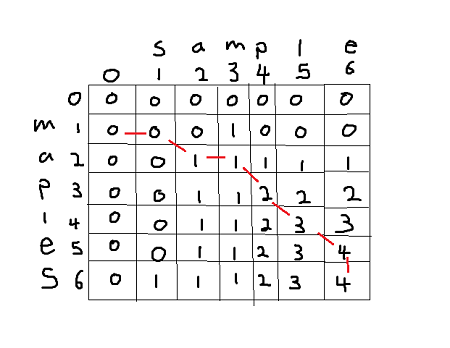 s a m p l e
0 1 2 3 4 5 6
0 0 0 0 0 0 0 0
m 1 0 0 0 1 0 0 0
a 2 0 0 1 1 1 1 1
p 3 0 0 1 1 2 2 2
l 4 0 0 1 1 2 3 3
e 5 0 0 1 1 2 3 4
s 6 0 1 1 1 2 3 4